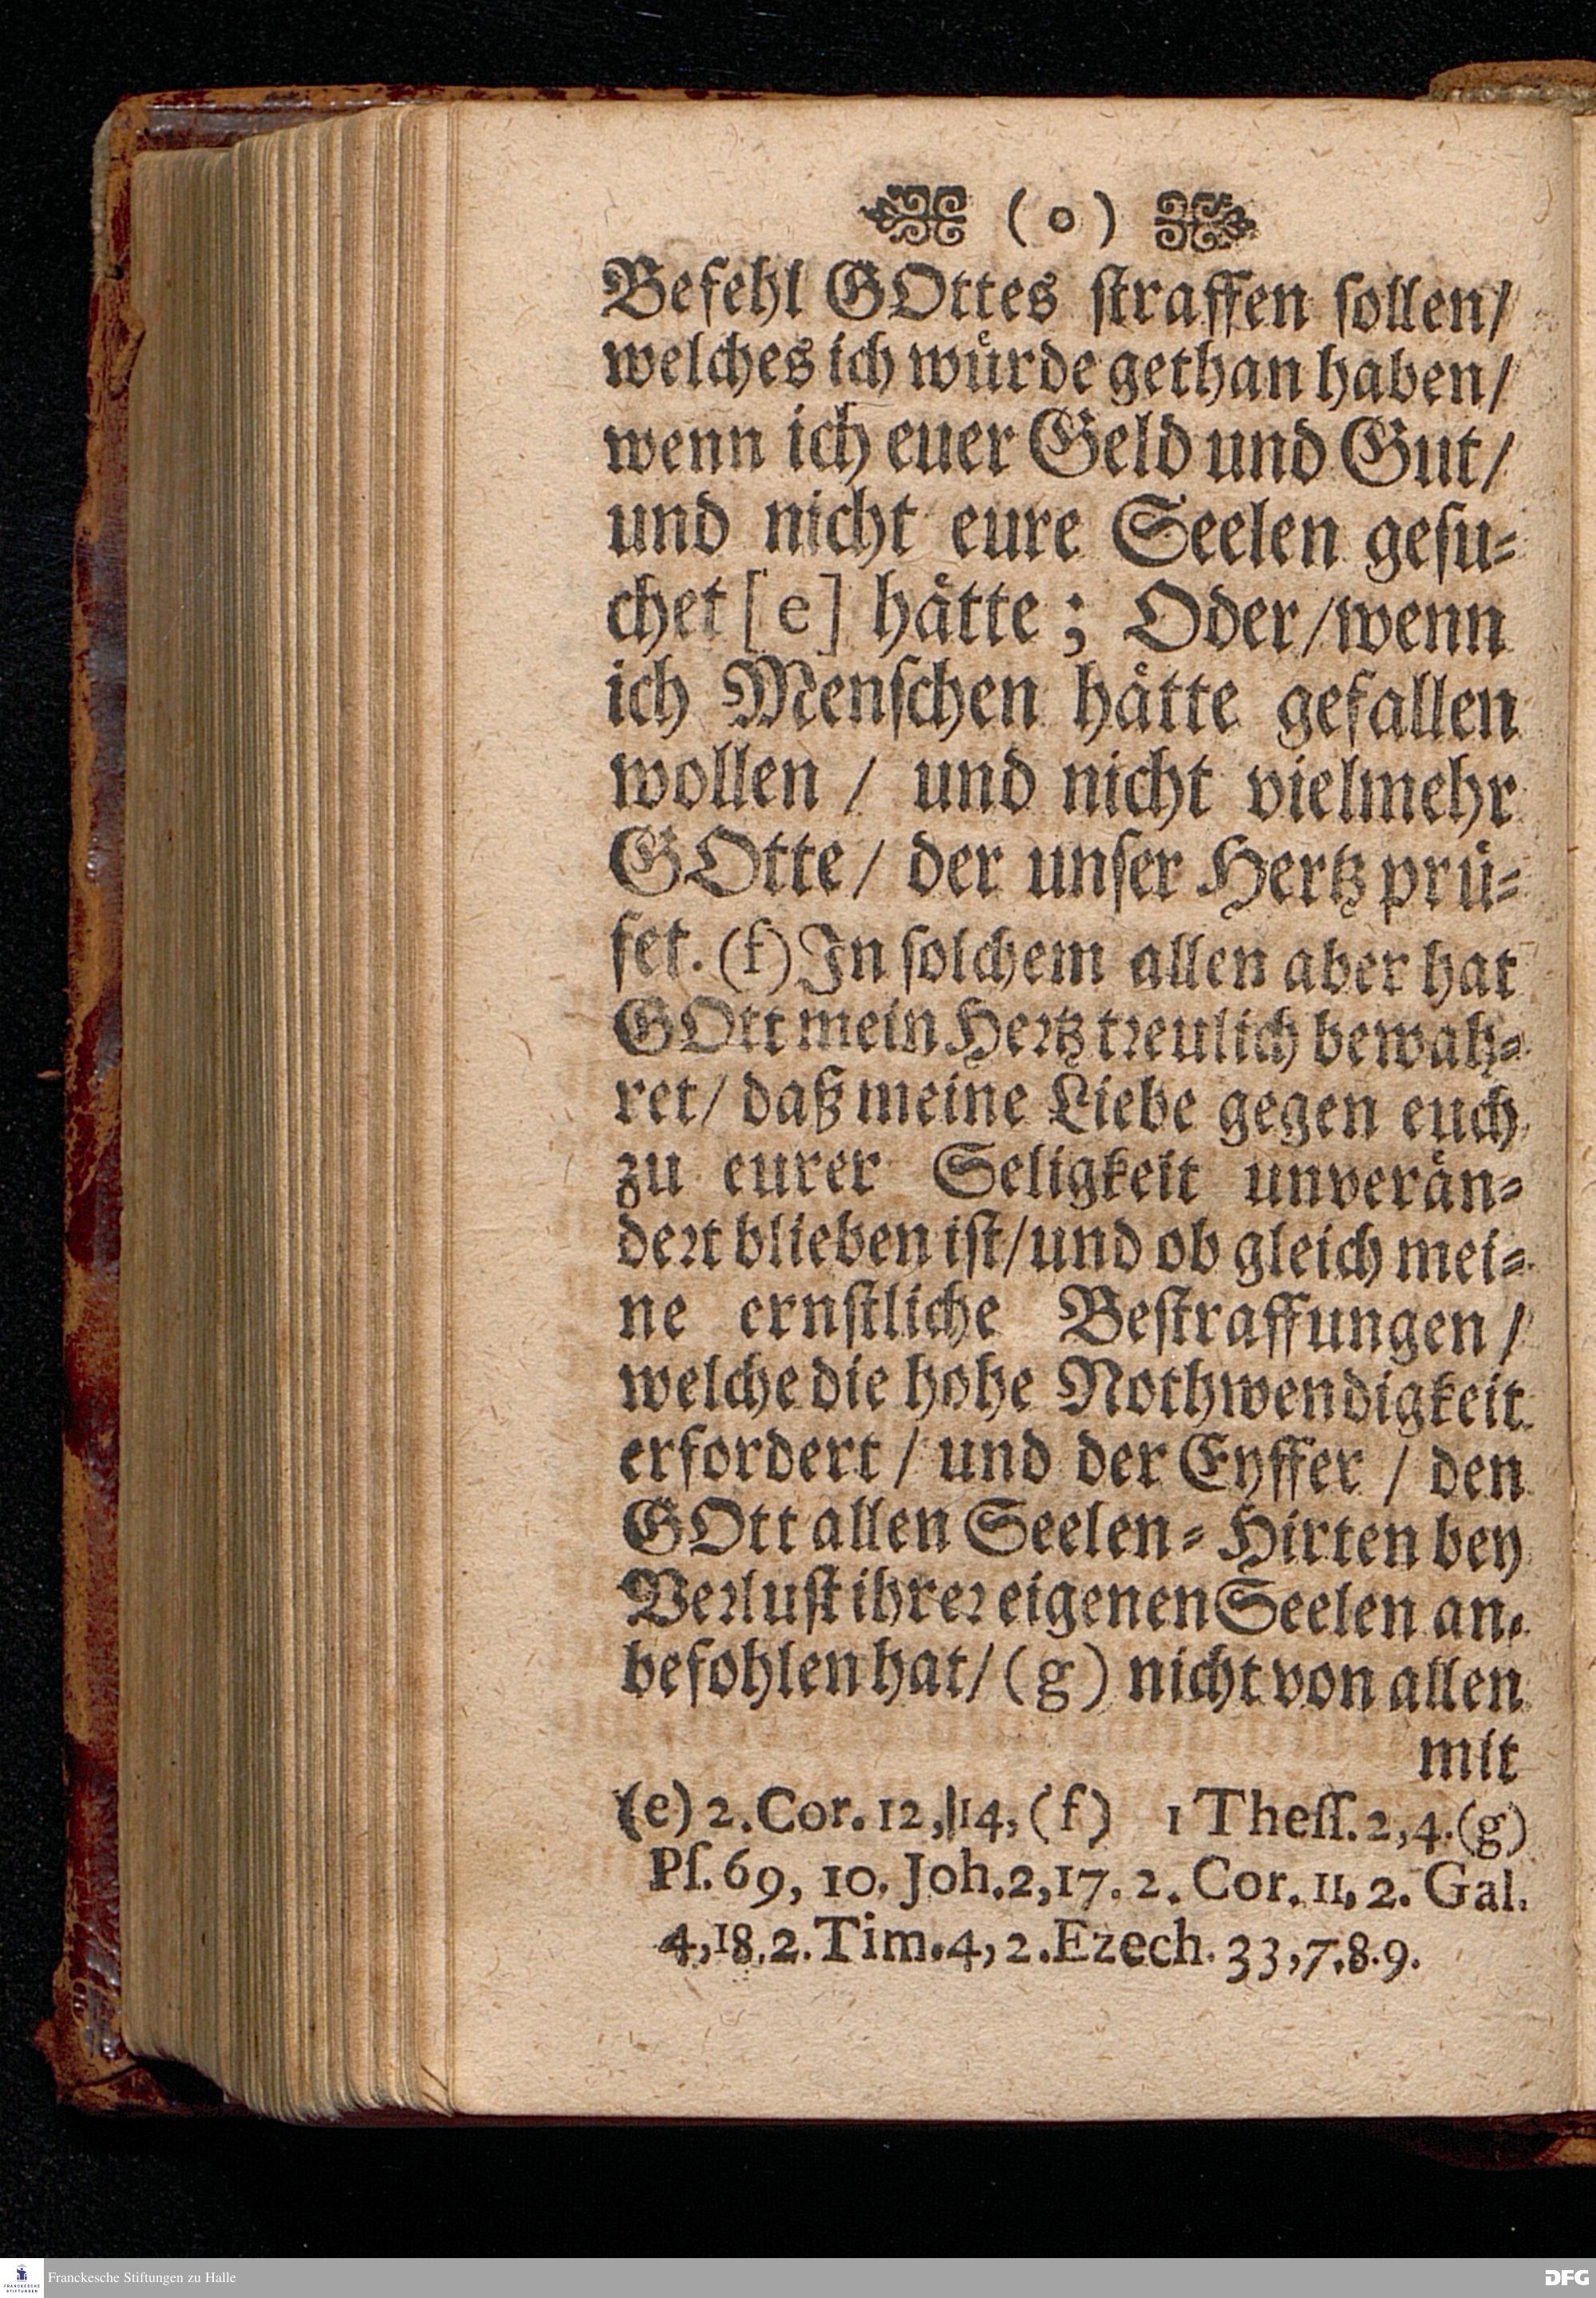 ( o )
Befehl GOttes ſtraffen ſollen/
welches ich wuͤrde gethan haben/
wenn ich euer Geld und Gut/
und nicht eure Seelen geſu-
chet [e] haͤtte ; Oder/wenn
ich Menſchen haͤtte gefallen
wollen / und nicht vielmehr
GOtte/ der unſer Hertz pruͤ-
fet. (f) In ſolchem allen aber hat
GOtt mein Hertz treulich bewah-
ret/ daß meine Liebe gegen euch
zu eurer Seligkeit unveraͤn-
dert blieben iſt/und ob gleich mei-
ne ernſtliche Beſtraffungen/
welche die hohe Nothwendigkeit
erfordert / und der Eyffer / den
GOtt allen Seelen-Hirten bey
Verluſt ihrer eigenen Seelen an-
befohlen hat/ (g) nicht von allen
mit
(e) 2. Cor. 12, 14, (f) 1 Theſſ. 2, 4. (g)
Pſ. 69, 10. Joh. 2, 17. 2. Cor. 11, 2. Gal.
4, 18. 2. Tim. 4, 2. Ezech. 33, 7. 8. 9.
Franckesche Stiftungen zu Halle
DFG